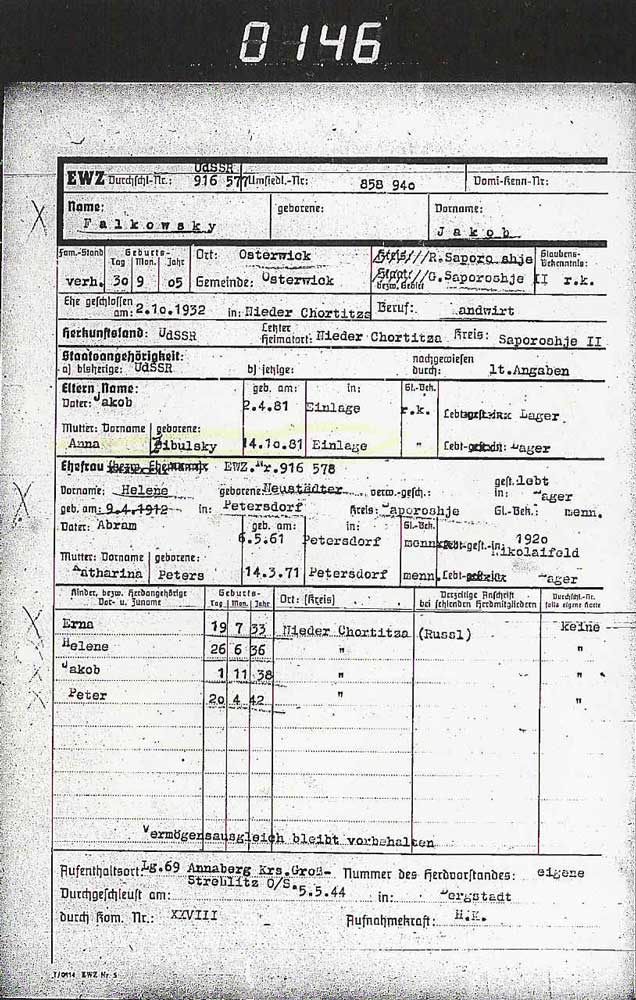 0146
UdSSR
EWZ Durchschl-Nr.: 916 577 Umsiedl.-Nr: 858 940 Vomi-Kenn-Nr:
Name: geborene: Vorname:
Falkowsky Jakob
Fam.-Stand Geburts- Ort: Osterwick R.Saporo shje Glaubens-
Tag Mon. Jahr Bekenntnis:
verh. 30 9 05 Gemeinde: Osterwick G.Saporoshje II r.k.
bezw. Gebiet
Ehe geschlossen
am: 2.10.1932 in: Nieder Chortitza Beruf: andwirt
Herkunftsland: UdSSR Letzter Heimatort: Nieder Chortitza Kreis: Saporoshje II
Staatsangehörigkeit: nachgewiesen
a) bisherige: UdSSR b) jetzige: durch: lt.Angaben
Eltern Name: geb. am: in: Gl.-Bek.
Vater: Jakob 2.4.81 Einlage r.k. Lebt Lager
Mutter: Vorname geborene:
Anna Zibulsky 14.10.81 Einlage " Lebt Lager
Ehefrau EWZ.Nr.916 578
Vorname: Helene geborene: Neustädter verw.-gesch.: gest. lebt
in: Lager
geb. am: 9.4.1912 in: Petersdorf Kreis: Saporoshje Gl.-Bek.: menn.
Vater: Abram geb. am: in: Gl.-Bek.
6.5.61 Petersdorf menn gest.-in: 1920
Nikolaifeld
Mutter: Vorname geborene:
Katharina Peters 14.3.71 Petersdorf menn. Lebt Lager
Kinder, bezw. Herdangehörige Geburts- Ort: (Kreis) Derzeitige Anschrift Durchschl.-Nr.
Vor- u. Zuname Tag Mon. Jahr bei fehlenden Herdmitgliedern falls eigene Karte
Erna 19 7 33 Nieder Chortitza (Russl) keine
Helene 26 6 36 " "
Jakob 1 11 38 " "
Peter 20 4 42 " "
Vermögensausgleich bleibt vorbehalten
Aufenthaltsort: Lg.69 Annaberg Krs.Groß- Nummer des Herdvorstandes: eigene
Strehlitz O/S.
Durchgeschleust am: 5.5.44 in: Bergstadt
durch Kom. Nr.: XXVIII Aufnahmekraft: H.K.
EWZ Nr. 5